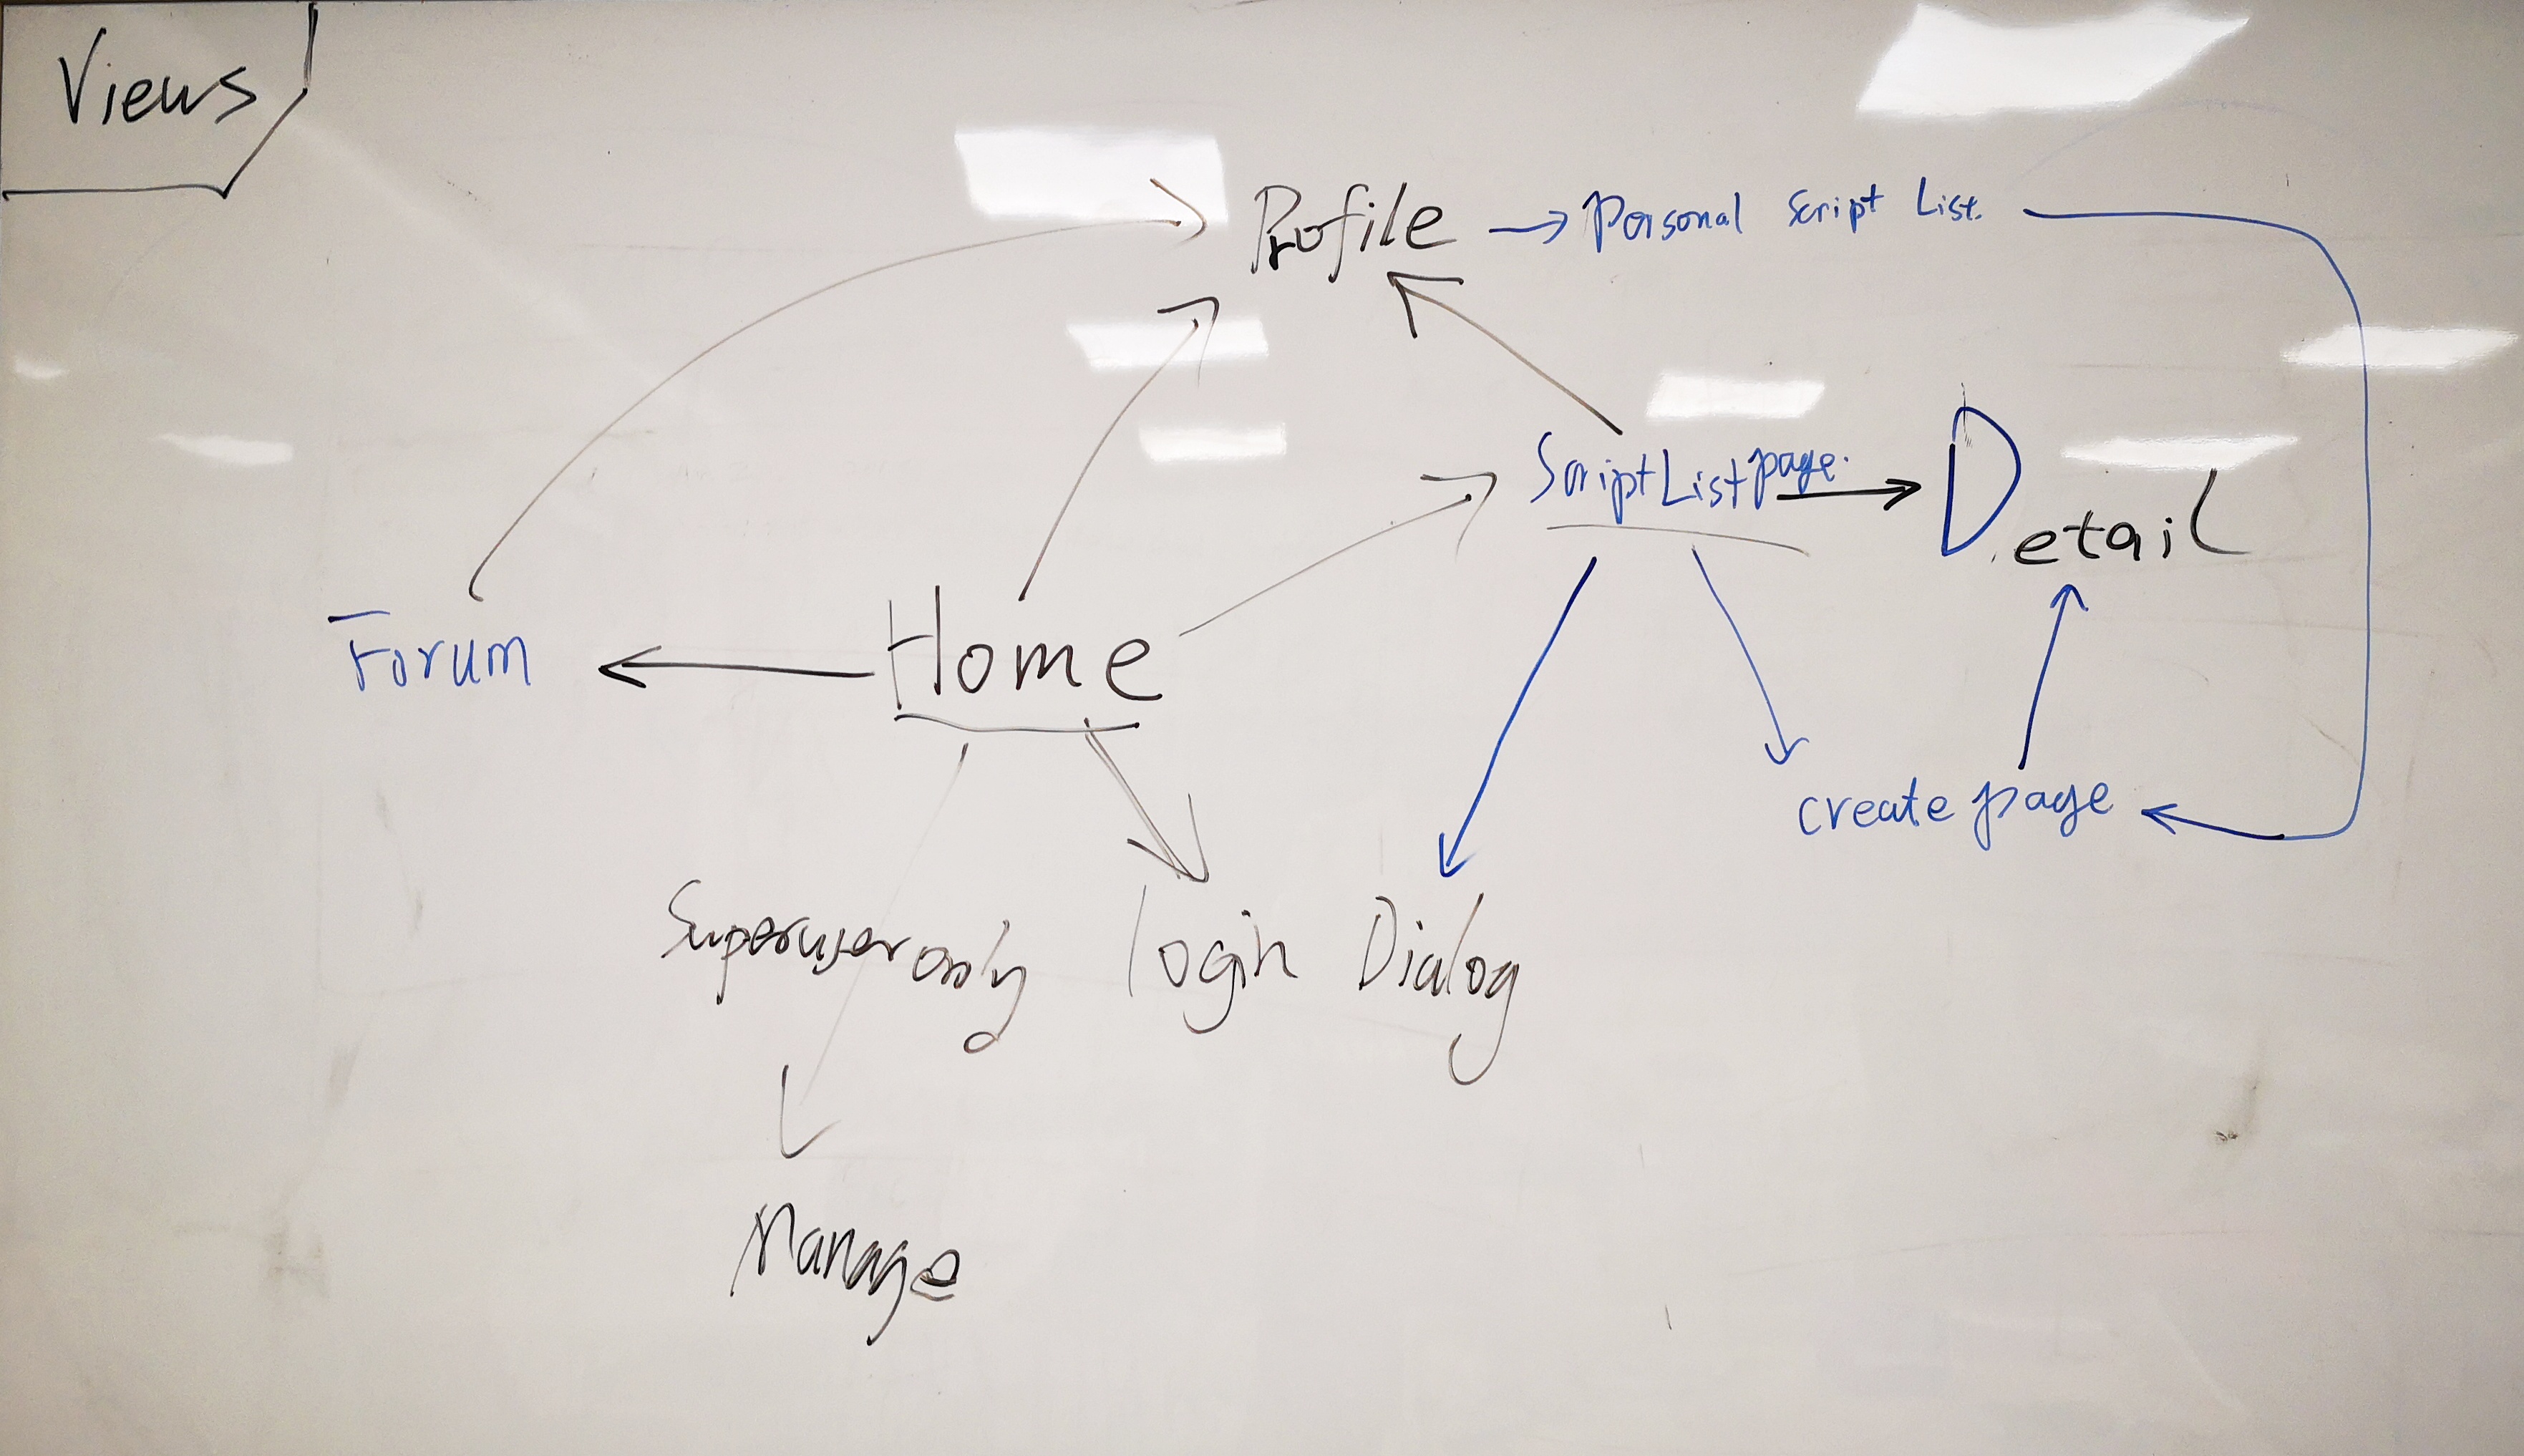 Views
Profile
Personal Script List.
ScriptList page.
Detail
Forum
Home
create page
Superuser only
login Dialog
Manage